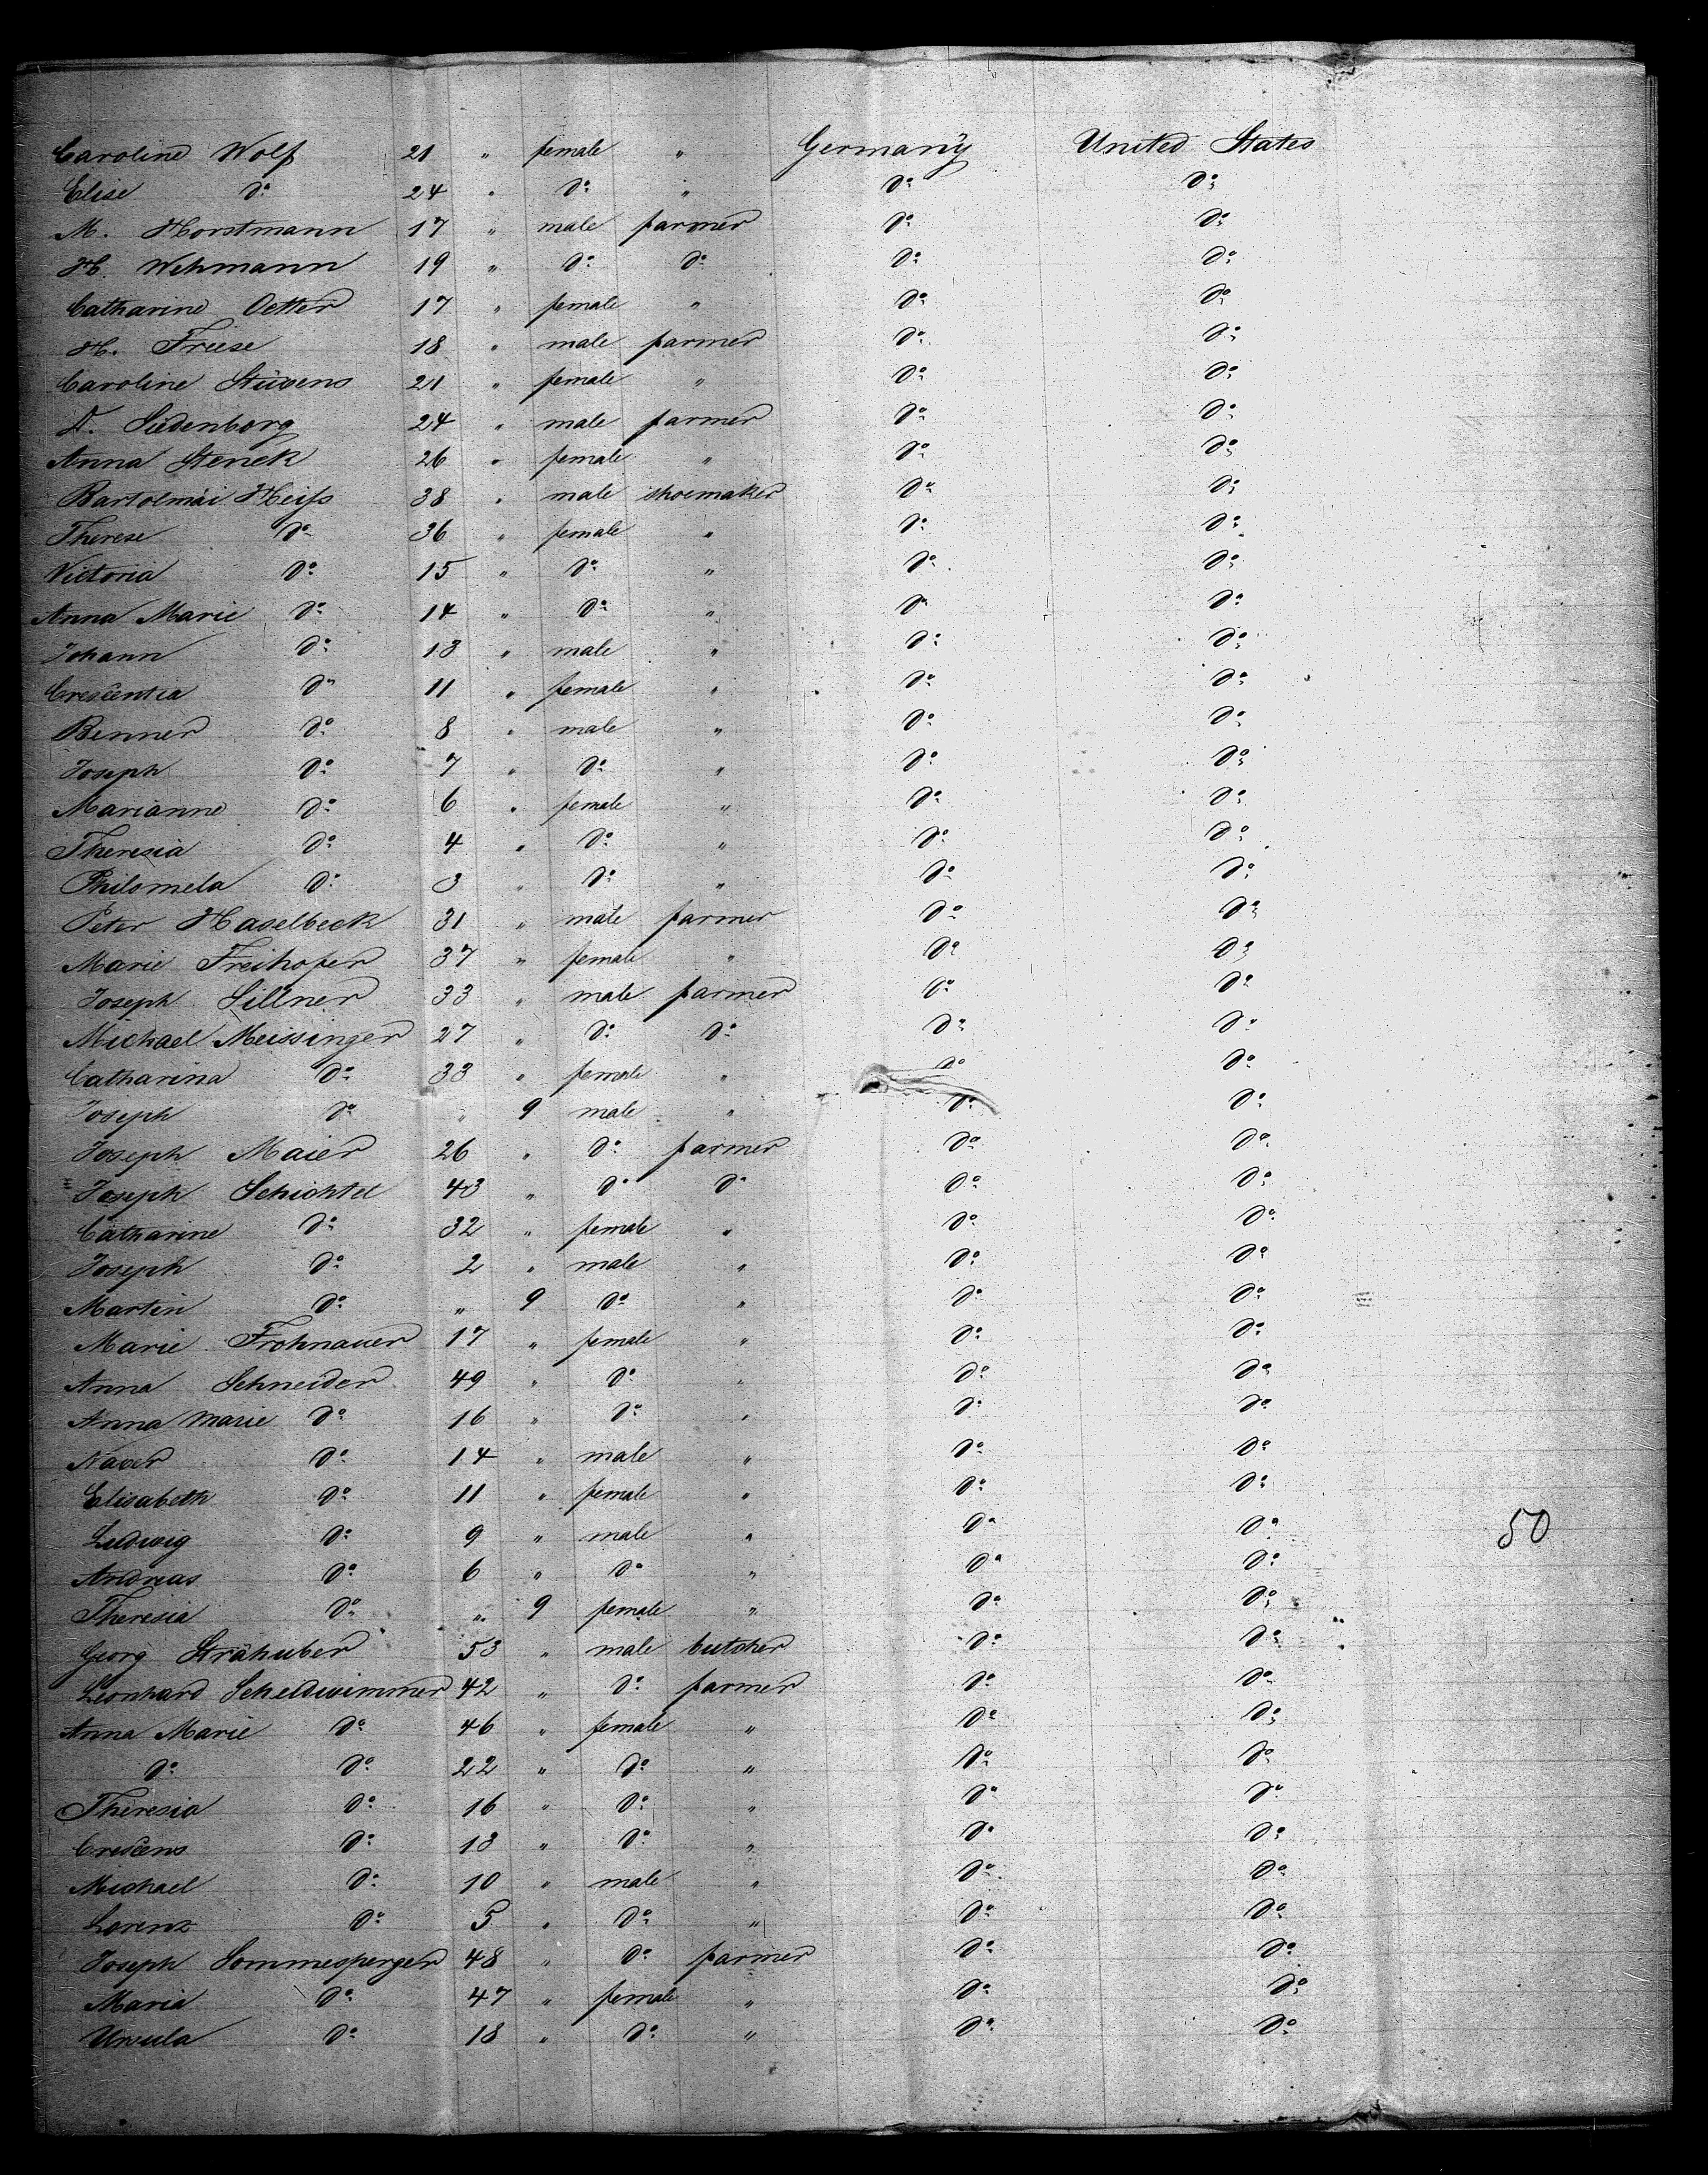 Caroline Wolf 21 " female " Germany United States
Elise do 24 " do " do do
M. Horstmann 17 " male farmer do do
H. Wehmann 19 " do do do do
Catharine Oetter 17 " female " do do
H. Freese 18 " male farmer do do
Caroline Stüvens 21 " female " do do
D. Südenborg 24 " male farmer do do
Anna Stenck 26 " female " do do
Bartolmäi Heiss 38 " male shoemaker do do
Therese do 36 " female " do do
Victoria do 15 " do " do do
Anna Marie do 14 " do " do do
Johann do 13 " male " do do
Crescentia do 11 " female " do do
Benner do 8 " male " do do
Joseph do 7 " do " do do
Marianne do 6 " female " do do
Theresia do 4 " do " do do
Philomela do 3 " do " do do
Peter Haselbeck 31 " male farmer do do
Marie Freihofer 37 " female " do do
Joseph Sillner 33 " male farmer do do
Michael Meissinger 27 " do do do do
Catharina do 33 " female " do do
Joseph do " 9 male " do do
Joseph Maier 26 " do farmer do do
Joseph Schichtel 43 " do do do do
Catharine do 32 " female " do do
Joseph do 2 " male " do do
Martin do " 9 do " do do
Marie Frohnauer 17 " female " do do
Anna Schneider 49 " do " do do
Anna Marie do 16 " do " do do
Xaver do 14 " male " do do
Elisabeth do 11 " female " do do
Ludwig do 9 " male " do do 50
Andreas do 6 " do " do do
Theresia do " 9 female " do do
Georg Strähuber 53 " male butcher do do
Leonhard Scheidwimmer 42 " do farmer do do
Anna Marie do 46 " female " do do
do do 22 " do " do do
Theresia do 16 " do " do do
Crescens do 13 " do " do do
Michael do 10 " male " do do
Lorenz do 5 " do " do do
Joseph Sommesperger 48 " do farmer do do
Maria do 47 " female " do do
Ursula do 18 " do " do do